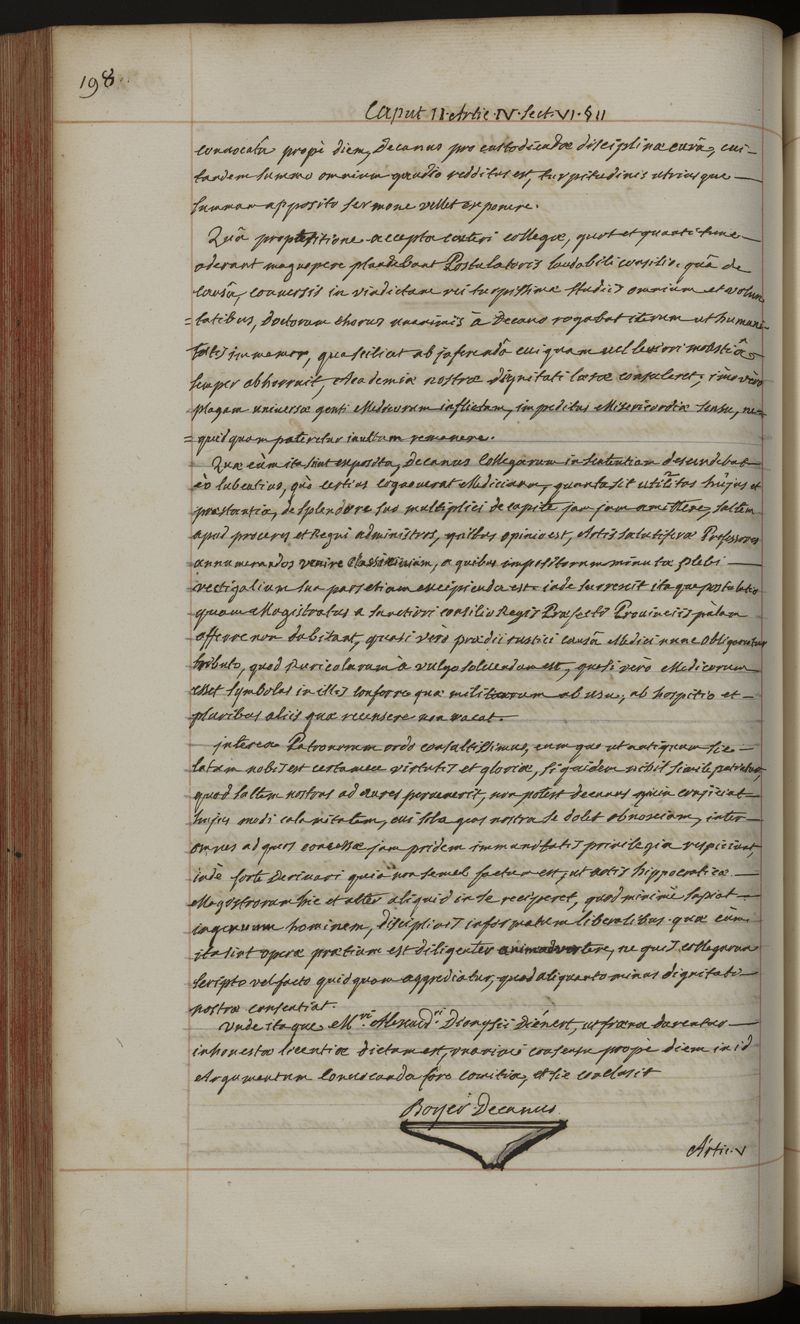 198
Caput II. Artic. IV. Sect. VI. § II
convocatâ propè diem, Decanus pro custodiendæ disciplinæ curâ, cui-
tandem summo omnium gaudio redditus est, turpitudinis utriusque
summam apposito sermone vellet exponere.
Quâ propositione acceptâ cæteri collegæ, quot et quanti tunc
aderant magnopere plaudebant Postulatoris laudabili consilio. quâ de
causâ, conversis in vindictam rei turpissimæ studiis omnium et volun
=tatibus, doctorum chorus unanimis à Decano rogabat iterum ut humani-
tatis immemor, quæ scilicet ab inferendâ cuiquam vel leviori molestiâ
semper abhorruit, Academiæ nostræ dignitati læsæ consuleret; imò verò
plagam universæ genti Medicorum inflictam, impeditus Misericordiæ sensu, ne=
=quidquam pateretur inultam remanere.
Quæ cùm ita sint exposita, Decanus Collegarum in sententiam descendebat
eò lubentius, quò certius cognoverat Medicinam, quanta sit utilitas hujus et
præstantia, de splendore suo multiplici de capite jam jam amittere, saltem
apud proceres et Regni administros, quibus opinio est, Artis salutiferæ Professores
annumerandos venire Classi civium, a quibus impositorum minutæ plebi
vectigalium sua pars etiam excipienda est. inde surrexit itaque postulatio
quam Magistratus a sanctiori consilio Regis Præfecti Provinciis palam
afferre non dubitant, quasi verò prædii rustici causâ Medici nunc obligarentur
tributo, quod Ruricolarum à vulgo solvendum est, quasi verò Medicorum
esset symbolas in illis conferre quæ militarum ab usu, ab hospitio et
pluribus aliis quæ recensere non vacat.
interea Patronorum ordo consultissimus, cum quo ut antiquum sic
latam nobis est certamen virtutis et gloriæ, siquidem nihil simile patiatur,
quod saltem nostras ad aures pervenerit, non potest decanus quin conjiciat
hujus modi calamitatem, cui sola quos nostra se dolet obnoxiam, inter
omnes ad quos concessæ jam pridem immunitatis privilegia respiciunt,
inde forte derivari quia non semel factum est, ut artis hippocraticæ
Magistrorum hic et alter aliquid in se reciperet, quod minimè sapiat
ingenuum hominem, disciplinis informatum liberalibus. quæ cùm
ita sint operæ prætium est diligenter animadvertere, ne quis collegarum
scripto vel facto quidquam aggrediatur, quod aliquanto minus dignitati
nostræ consentiat.
Unde itaque M.ri Alexand.ri Dionysii Diénert, ut fræna darentur
inhonestæ licentiæ dictum est, unanimi consensu propè diem in id
Argumentum convocanda fore comitia, et sic conclusit
Boyer Decanus
Artic. V